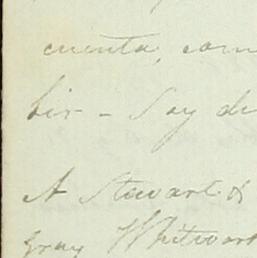 cuenta, com
bir - Soy de
A Stewart &
Gray Whitwort